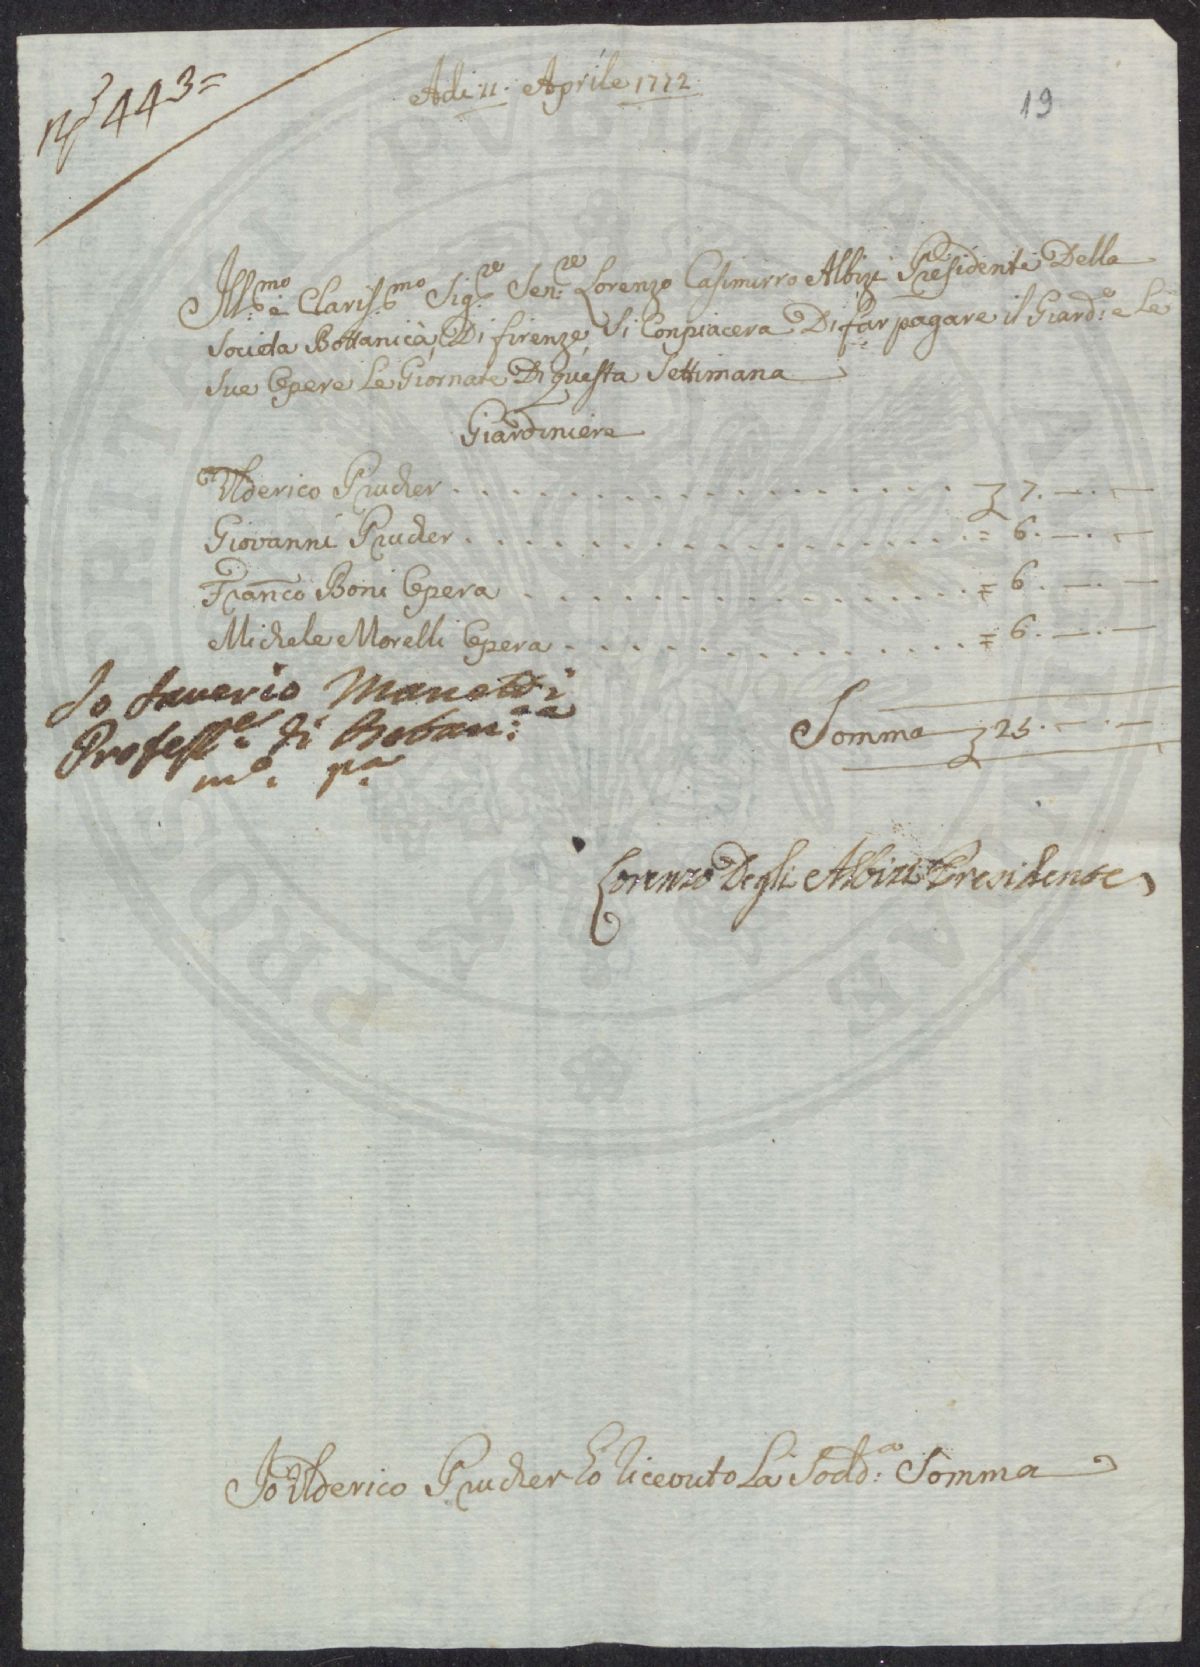 N.° 443=
Adi 11. Aprile 1772
19
Ill:mo e Claris:mo Sig:re Sen:re Lorenzo Casimirro Albizi Presidente Della
Societa Bottanica, Di firenze, Si Conpiacera Di far pagare il Giard:e e Le
Sue Opere Le Giornate Di questa Settimana
Giardiniere
Ulderico Prucher . . . . . . . . . . . . . . . . £ 7. — . —
Giovanni Prucher . . . . . . . . . . . . . . . . = 6. — . —
Franco Boni Opera . . . . . . . . . . . . . . . . = 6. — . —
Michele Morelli Opera . . . . . . . . . . . . . . = 6. — . —
Somma £ 25. — . —
Io Saverio Manetti
Profess:e di Botan:ca
m:o p:a
Lorenzo Degli Albizi Presidente
Io Ulderico Prucher O riceuto La Sodd:a Somma
PROSPERITATI PUBLICAE AUGENDAE